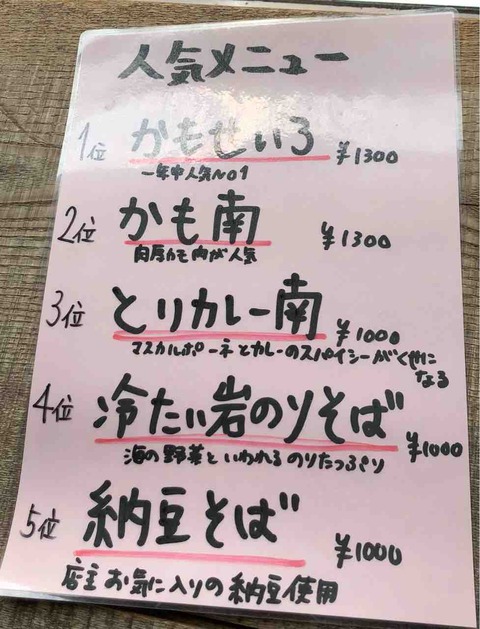 人気メニュー
1位 かもせいろ ¥1300
一年中人気No1
2位 かも南 ¥1300
肉厚カモ肉が人気
3位 とりカレー南 ¥1000
マスカルポーネとカレーのスパイシーがくせに
なる
4位 冷たい岩のりそば ¥1000
海の野菜といわれるのりたっぷり
5位 納豆そば ¥1000
店主お気に入りの納豆使用